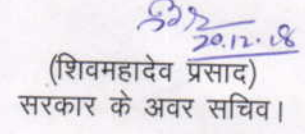 20.12.18
(शिवमहादेव प्रसाद)
सरकार के अवर सचिव।